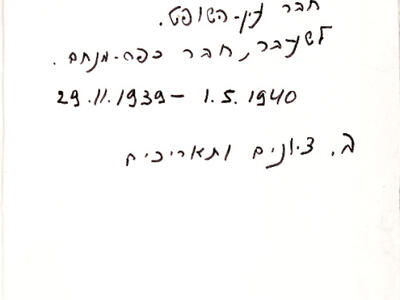 חבר עין-השופט.
לשעבר, חבר כפר-מנחם.
29.11.1939 – 1.5.1940
ב. ציונים ותאריכים